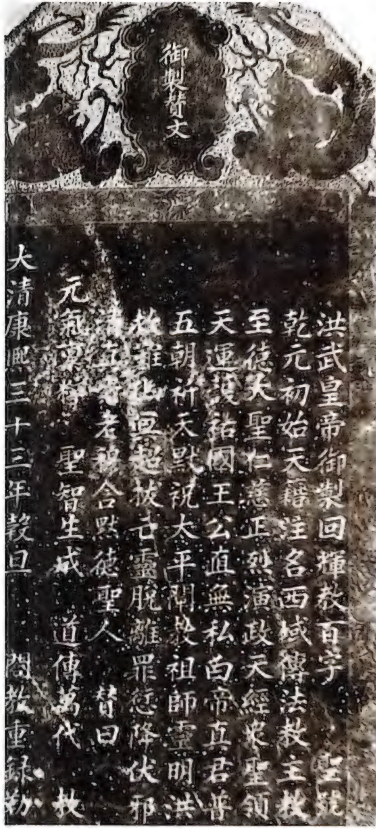 御製替文
洪武皇帝御製回輝教百字 聖號
乾元初始天籍注名西域傳法教主敕
至德大聖仁慈正烈演政天經衆聖領
天運護祐國王公直無私白帝真君普
五朝祈天默祝太平開教祖師靈明洪
救難 冥超拔亡靈脫離罪愆降伏邪
清真 老穆合默德聖人 替曰
元氣 聖智生成 道傳萬代 敕
大清康熙三十三年穀旦 閤教重錄勒